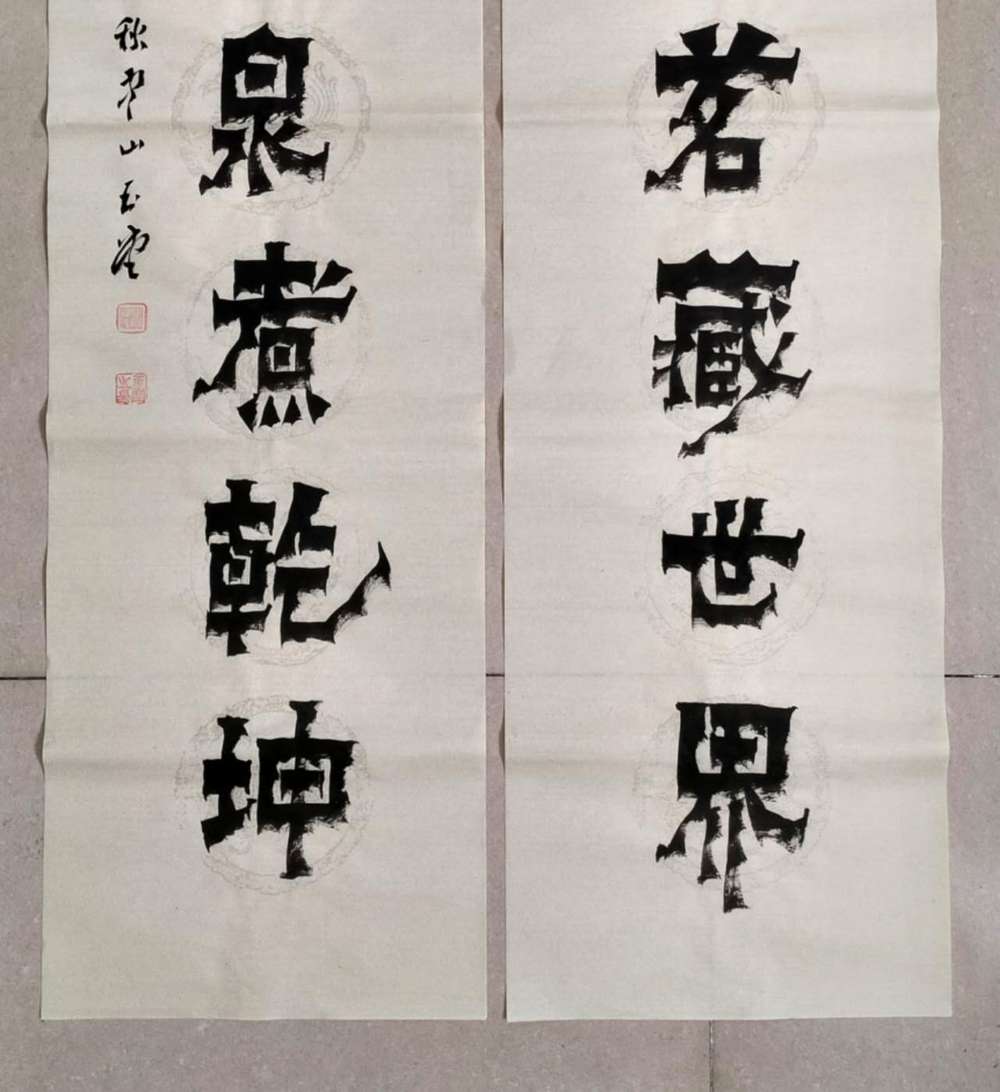 茗藏世界
泉煮乾坤
秋山玉